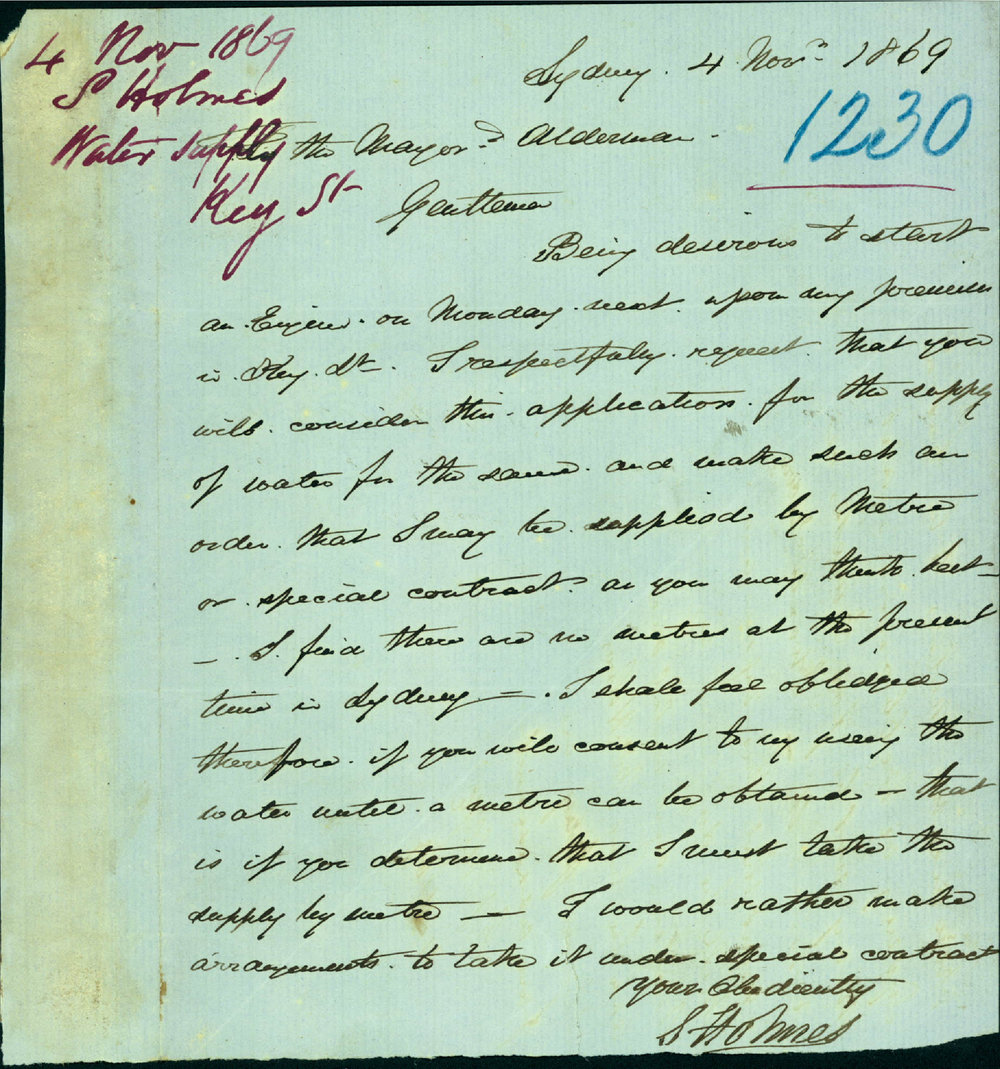 4 Nov 1869
S Holmes
Water supply
Key St
Sydney. 4 Novr 1869
1230
the Mayor & Alderman -
Gentlemen
Being desirous to start
an Engine on Monday next upon my premises
in Key St. I respectfully request that you
will consider this application for the supply
of water for the same and make such an
order that I may be supplied by Metre
or special contract as you may think best -
- . I find there are no metres at the present
time in Sydney - . I shall feel obledged
therefore if you will consent to my using the
water until a metre can be obtained - that
is if you determine that I must take the
supply by metre - I would rather make
arrangements to take it under special contract
Your Obediently
S Holmes